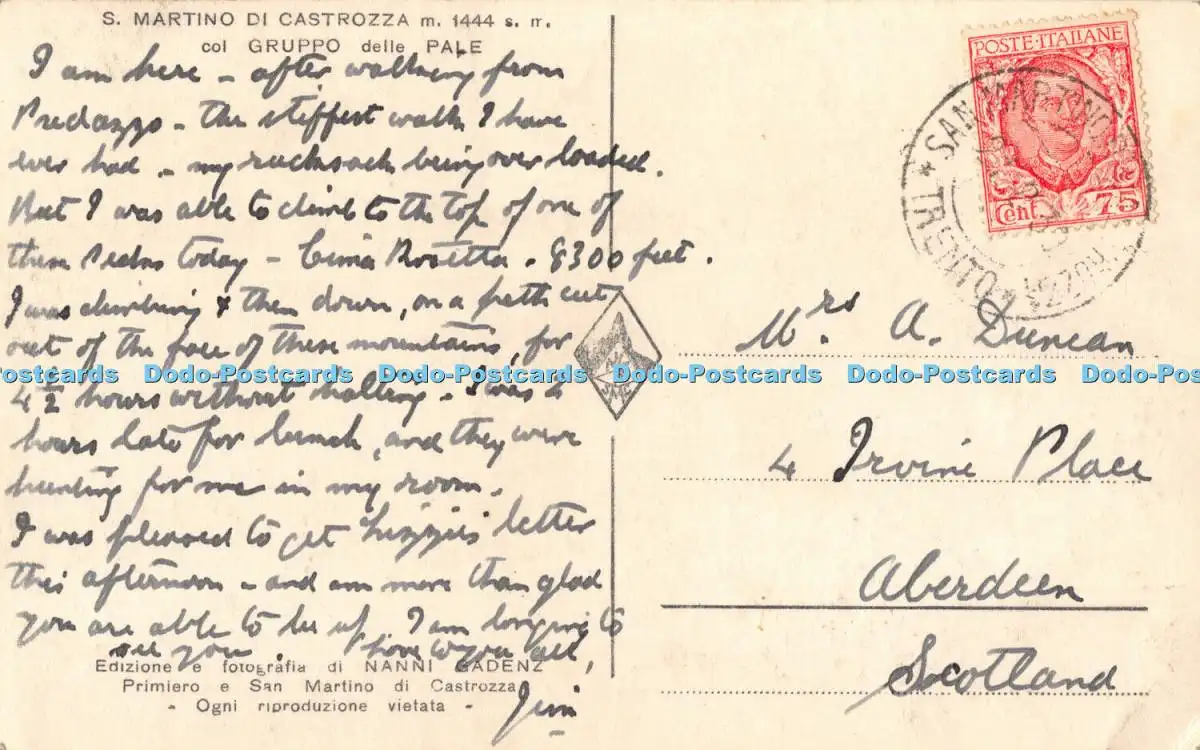 S. MARTINO DI CASTROZZA m. 1444 s. m.
col GRUPPO delle PALE
I am here - after walking from
Predazzo - the stiffest walk I have
ever had - my rucksack being over loaded.
But I was able to climb to the top of one of
these peaks today - Cima Rosetta - 8300 feet.
I was climbing & then down, on a path cut
out of the face of these mountains, for
4½ hours without halting. I was 2
hours late for lunch, and they were
hunting for me in my room.
I was pleased to get Lizzie's letter
this afternoon - and am more than glad
you are able to be up. I am longing to
see you. Love to you all,
Jim
Edizione e fotografia di NANNI GADENZ
Primiero e San Martino di Castrozza
- Ogni riproduzione vietata -
POSTE·ITALIANE
Cent. 75
SAN MARTINO
TRENTO
Mrs A. Duncan
4 Irvine Place
Aberdeen
Scotland
Dodo-Postcards Dodo-Postcards Dodo-Postcards Dodo-Postcards Dodo-Postcards Dodo-Postcards